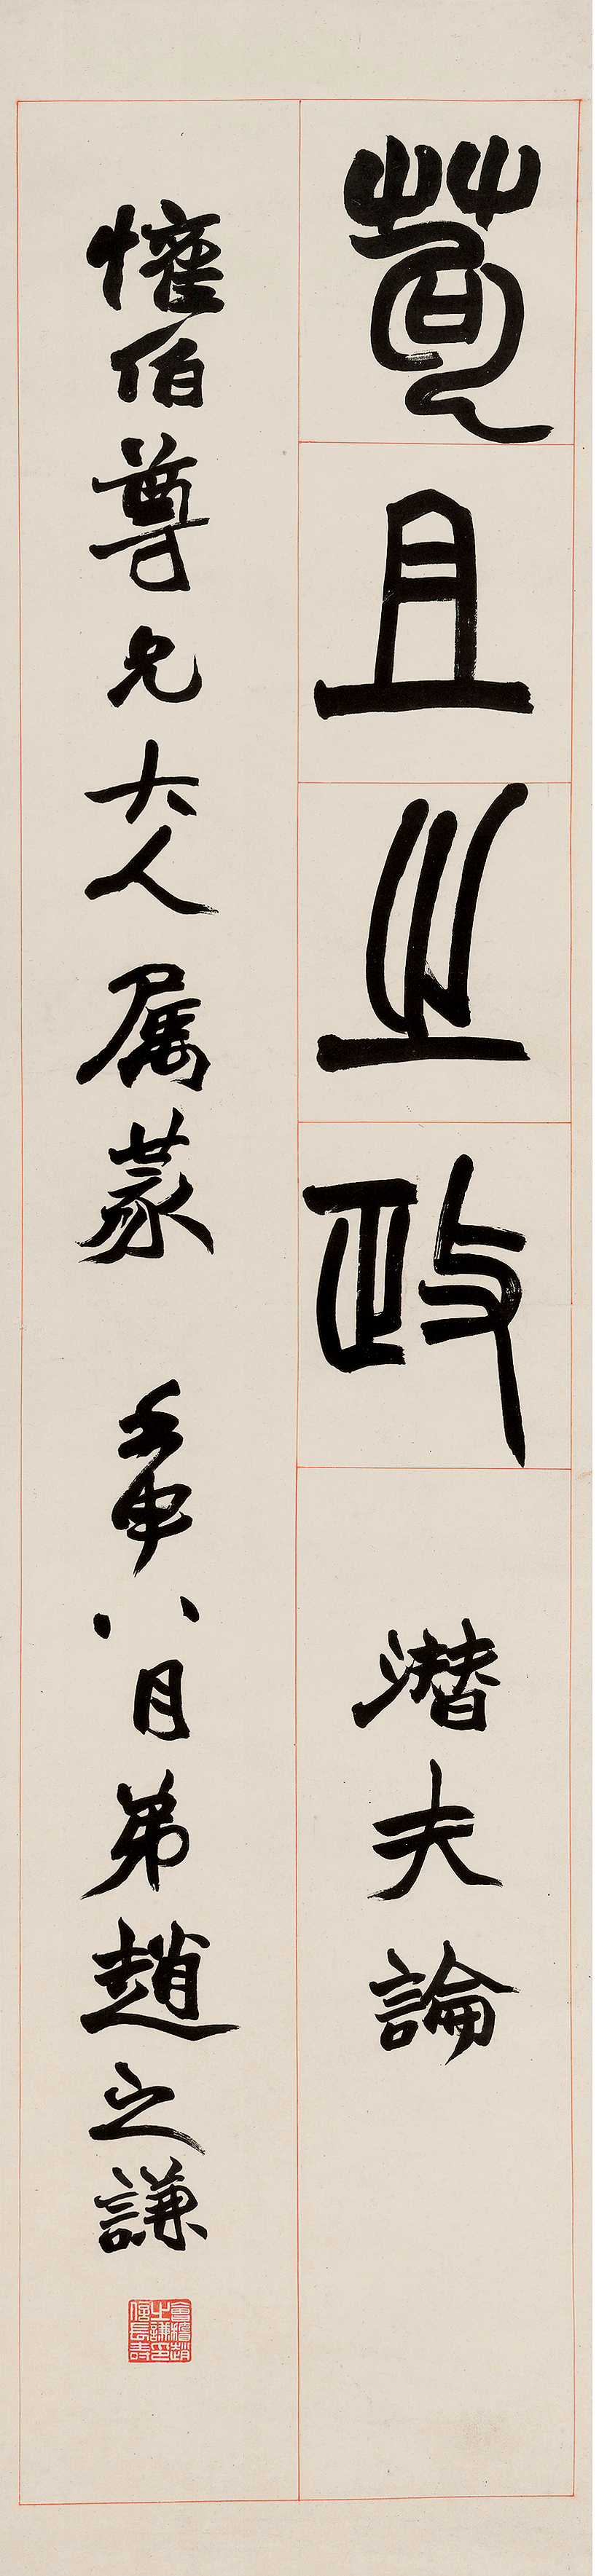 苟且之政
潛夫論
懽伯尊兄大人屬篆 壬申八月弟趙之謙
會稽趙之謙印信長壽